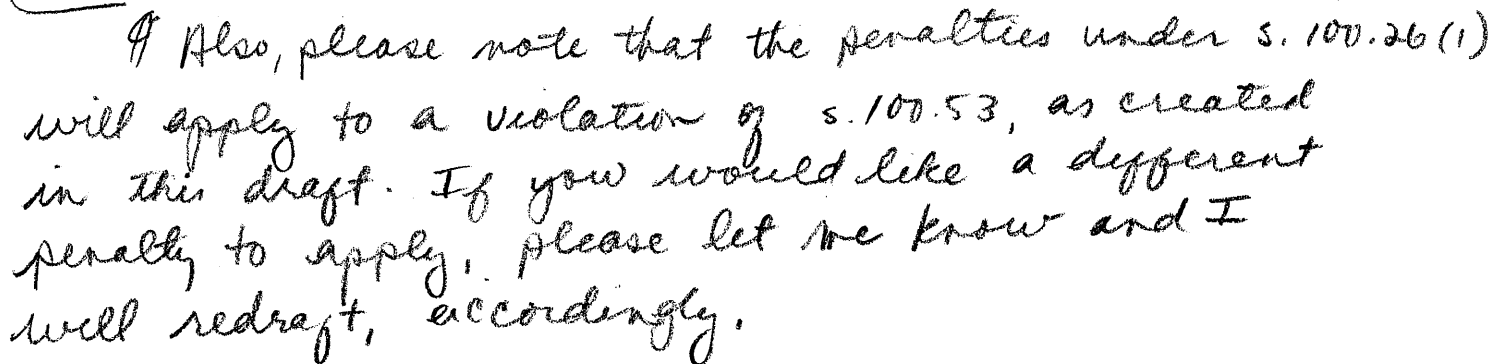 ¶ Also, please note that the penalties under s. 100.26(1)
will apply to a violation of s. 100.53, as created
in this draft. If you would like a different
penalty to apply, please let me know and I
will redraft, accordingly.